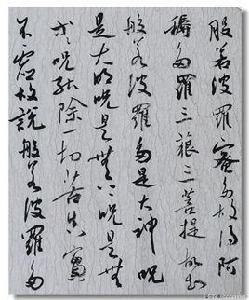 般若波羅蜜多故得阿
耨多羅三藐三菩提故知
般若波羅多是大神呪
是大明呪是無上呪是無
等々呪能除一切苦真實
不虛故說般若波羅多